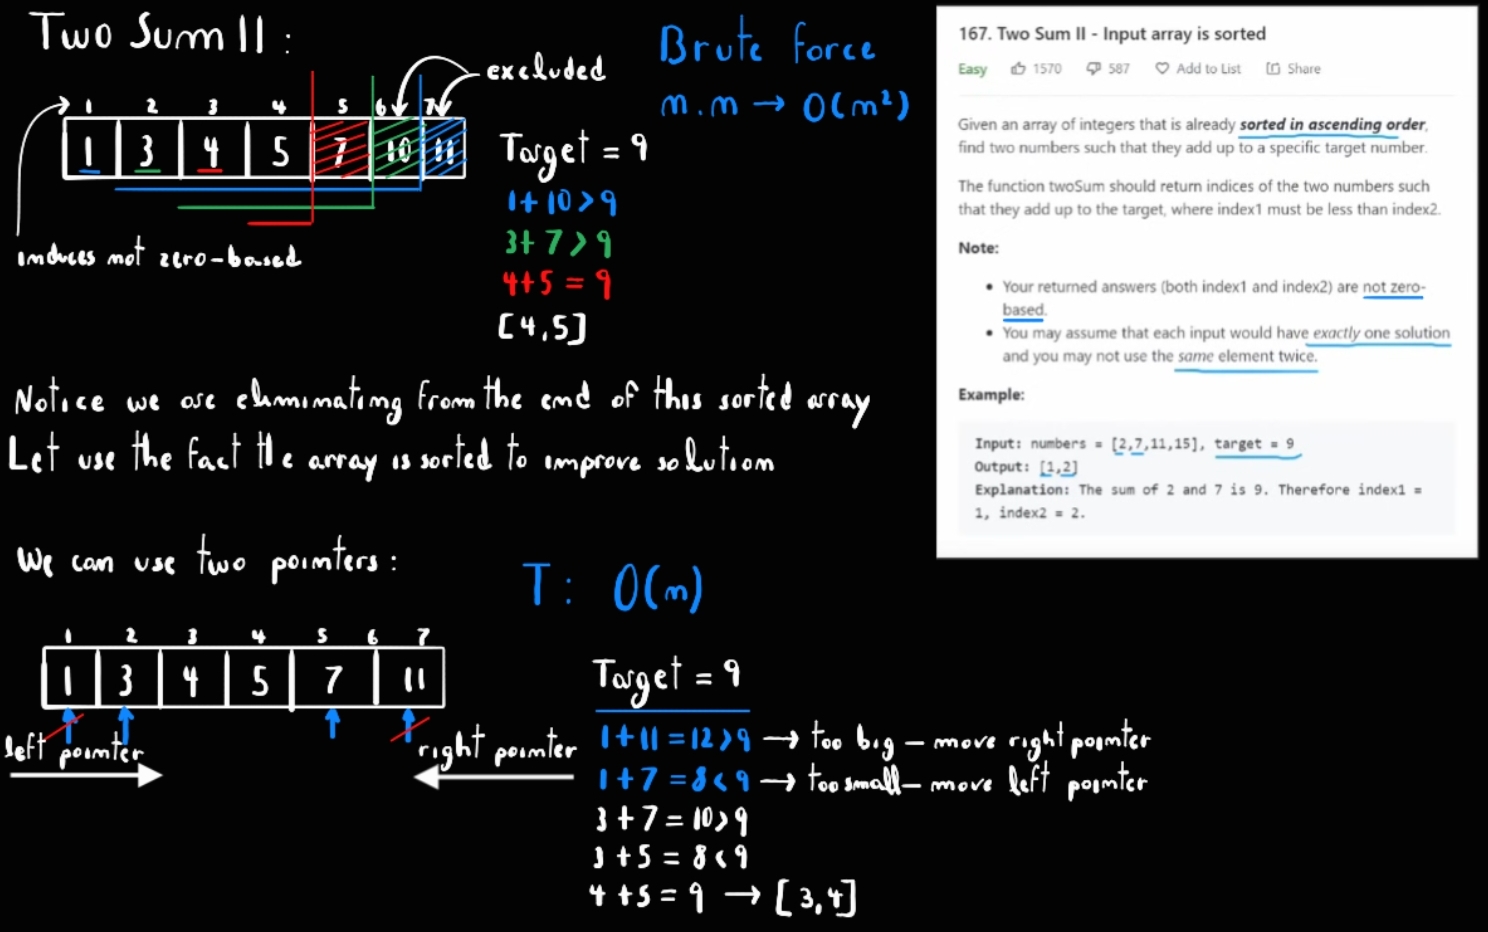 Two Sum II :
excluded
1 2 3 4 5 6 7
1 3 4 5 7 10 11
indices not zero-based
Target = 9
1 + 10 > 9
3 + 7 > 9
4 + 5 = 9
[4,5]
Brute force
n.n → O(n²)
Notice we are eliminating from the end of this sorted array
Let use the fact the array is sorted to improve solution
We can use two pointers :
T : O(n)
1 2 3 4 5 6 7
1 3 4 5 7 11
left pointer
right pointer
Target = 9
1 + 11 = 12 > 9 → too big – move right pointer
1 + 7 = 8 < 9 → too small – move left pointer
3 + 7 = 10 > 9
3 + 5 = 8 < 9
4 + 5 = 9 → [3,4]
167. Two Sum II - Input array is sorted
Easy 1570 587 Add to List Share
Given an array of integers that is already sorted in ascending order,
find two numbers such that they add up to a specific target number.
The function twoSum should return indices of the two numbers such
that they add up to the target, where index1 must be less than index2.
Note:
• Your returned answers (both index1 and index2) are not zero-
based.
• You may assume that each input would have exactly one solution
and you may not use the same element twice.
Example:
Input: numbers = [2,7,11,15], target = 9
Output: [1,2]
Explanation: The sum of 2 and 7 is 9. Therefore index1 =
1, index2 = 2.